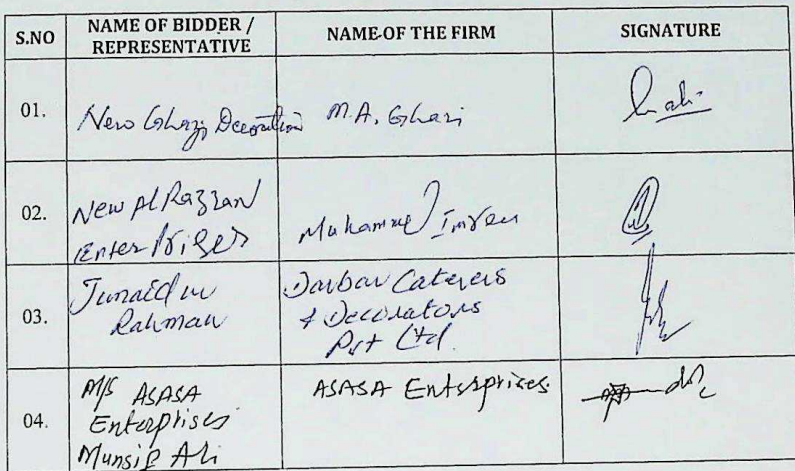 S.NO
NAME OF BIDDER /
REPRESENTATIVE
NAME OF THE FIRM
SIGNATURE
01.
New Ghazi Decoration
M.A. Ghazi
02.
New Al Razzan
Enterprises
Muhammed Imran
03.
Junaid ur
Rahman
Darbar Caterers
& Decorators
Pvt Ltd.
04.
M/s ASASA
Enterprises
Munsif Ali
ASASA Enterprises.